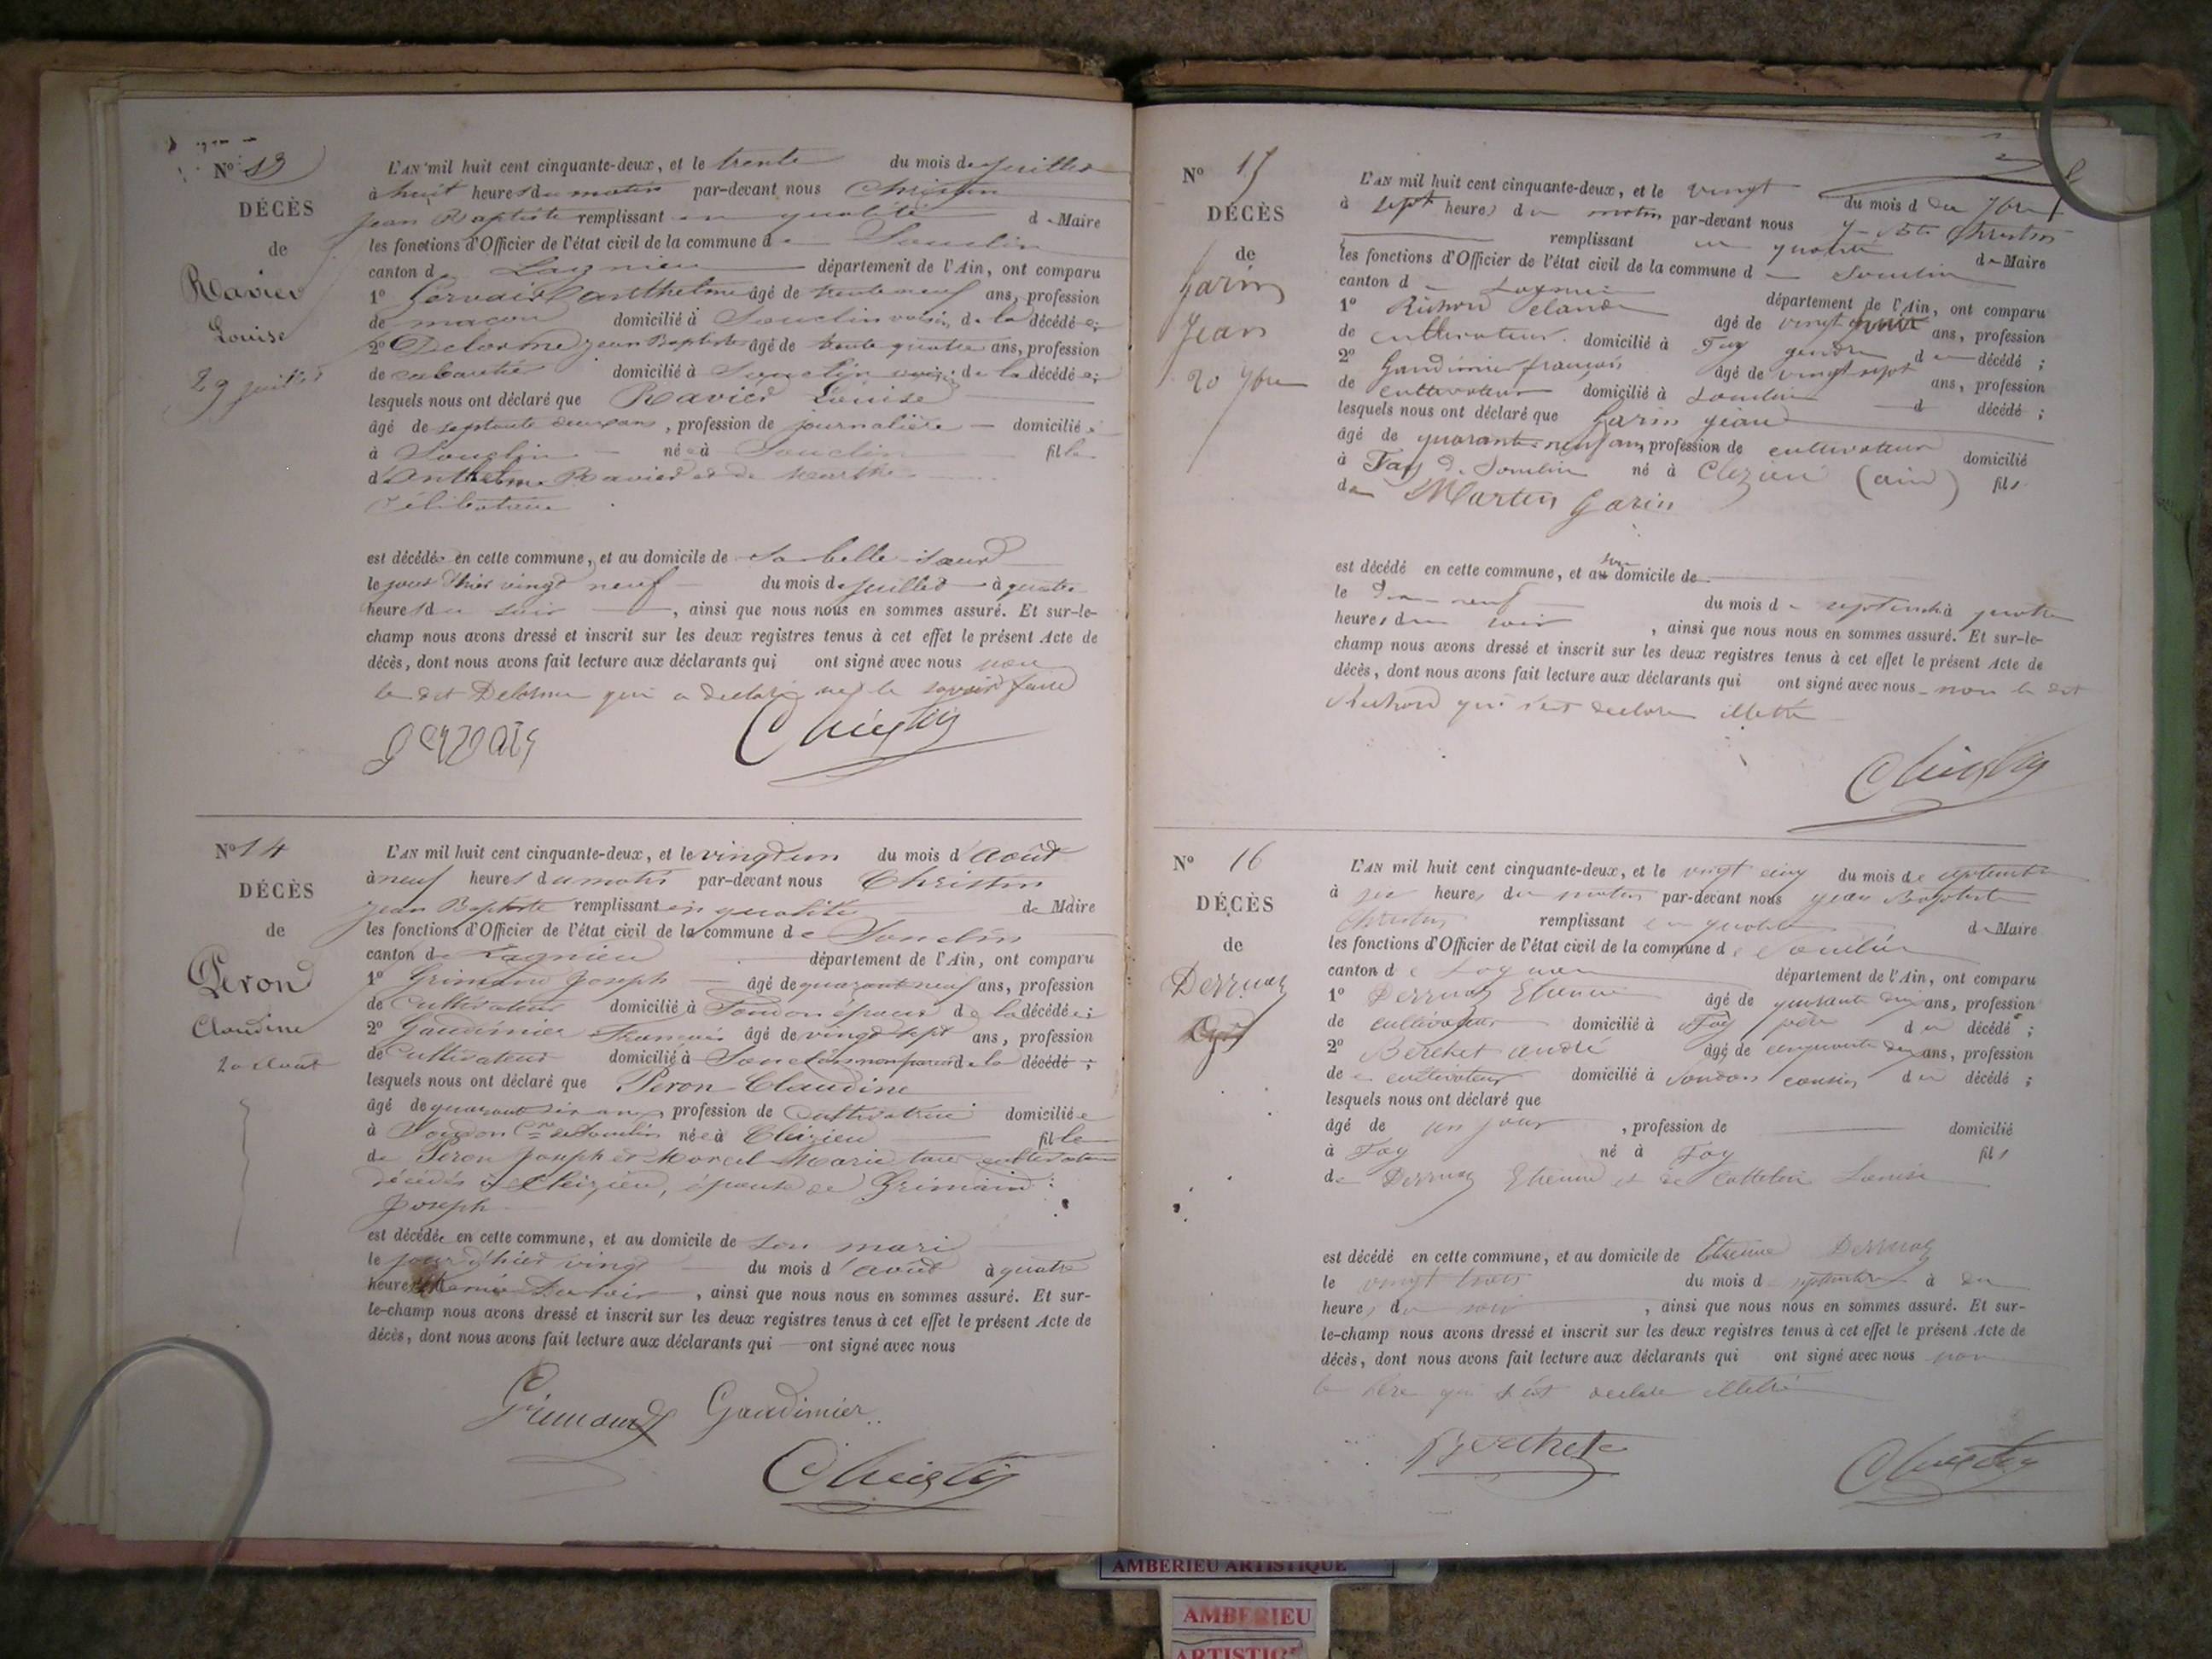 No 13
DÉCÈS
de
Ravier
Louise
29 juillet
L'AN mil huit cent cinquante-deux, et le trente du mois de juillet
à huit heures du matin par-devant nous Christin
Jean Baptiste remplissant en qualité de Maire
les fonctions d'Officier de l'état civil de la commune de Souclin
canton de Lagnieu département de l'Ain, ont comparu
1o Gervais Anthelme âgé de trente neuf ans, profession
de maçon domicilié à Souclin voisin de la décédée;
2o Delorme Jean Baptiste âgé de trente quatre ans, profession
de cabaretier domicilié à Souclin voisin de la décédée;
lesquels nous ont déclaré que Ravier Louise
âgé de septante deux ans, profession de journalière domiciliée
à Souclin née à Souclin fille
d'Anthelme Ravier et de Marthe
Célibataire
est décédée en cette commune, et au domicile de sa belle-sœur
le jour d'hier vingt neuf du mois de juillet à quatre
heures du soir, ainsi que nous nous en sommes assuré. Et sur-le-
champ nous avons dressé et inscrit sur les deux registres tenus à cet effet le présent Acte de
décès, dont nous avons fait lecture aux déclarants qui ont signé avec nous non
le dit Delorme qui a déclaré ne le savoir faire
Gervais Christin
No 14
DÉCÈS
de
Peron
Claudine
20 Août
L'AN mil huit cent cinquante-deux, et le vingt un du mois d'Août
à neuf heures du matin par-devant nous Christin
Jean Baptiste remplissant en qualité de Maire
les fonctions d'Officier de l'état civil de la commune de Souclin
canton de Lagnieu département de l'Ain, ont comparu
1o Grimaud Joseph âgé de quarant neuf ans, profession
de Cultivateur domicilié à Soudon époux de la décédée;
2o Gaudimier François âgé de vingt sept ans, profession
de Cultivateur domicilié à Souclin non parend de la décédé;
lesquels nous ont déclaré que Peron Claudine
âgé de quarant six ans, profession de Cultivatrice domiciliée
à Soudon Cne de Souclin née à Cleizieu fille
de Peron Joseph et Morel Marie tous cultivateurs
décédés à Cleizieu, épouse de Grimaud
Joseph
est décédée en cette commune, et au domicile de son mari
le jour d'hier vingt du mois d'août à quatre
heures du soir, ainsi que nous nous en sommes assuré. Et sur-
le-champ nous avons dressé et inscrit sur les deux registres tenus à cet effet le présent Acte de
décès, dont nous avons fait lecture aux déclarants qui ont signé avec nous
Grimaud Gaudimier
Christin
No 15
DÉCÈS
de
Garin
Jean
20 7bre
L'AN mil huit cent cinquante-deux, et le vingt du mois d 7bre
à sept heures du matin par-devant nous Christin
remplissant en qualité de Maire
les fonctions d'Officier de l'état civil de la commune d Souclin
canton d Lagnieu département de l'Ain, ont comparu
1o Richord âgé de vingt ans, profession
de cultivateur domicilié à Fay gendre du décédé;
2o Gaudimier françois âgé de vingt sept ans, profession
de cultivateur domicilié à Souclin d décédé;
lesquels nous ont déclaré que Garin Jean
âgé de quarante neuf ans, profession de cultivateur domicilié
à Fay de Souclin né à Clezieu (ain) fils
de Martin Garin
est décédé en cette commune, et au son domicile de
le dix neuf du mois d septembre à quatre
heures du soir, ainsi que nous nous en sommes assuré. Et sur-le-
champ nous avons dressé et inscrit sur les deux registres tenus à cet effet le présent Acte de
décès, dont nous avons fait lecture aux déclarants qui ont signé avec nous non le dit
Richord qui s'est déclaré illétré
Christin
No 16
DÉCÈS
de
Derruaz
L'AN mil huit cent cinquante-deux, et le vingt cinq du mois de septembre
à six heures du matin par-devant nous Jean Baptiste
Christin remplissant en qualité de Maire
les fonctions d'Officier de l'état civil de la commune de Souclin
canton de Lagnieu département de l'Ain, ont comparu
1o Derruaz Etienne âgé de quarante ans, profession
de cultivateur domicilié à Fay père du décédé;
2o Berchet andré âgé de cinquante ans, profession
de cultivateur domicilié à Soudon cousin du décédé;
lesquels nous ont déclaré que
âgé de un jour, profession de domicilié
à Fay né à Fay fils
de Derruaz Etienne et de Louise
est décédé en cette commune, et au domicile de Etienne Derruaz
le vingt trois du mois d septembre à
heures du soir, ainsi que nous nous en sommes assuré. Et sur-
le-champ nous avons dressé et inscrit sur les deux registres tenus à cet effet le présent Acte de
décès, dont nous avons fait lecture aux déclarants qui ont signé avec nous non
le père qui s'est déclaré illétré
Berchet Christin
AMBERIEU ARTISTIQUE
AMBERIEU
ARTISTIQUE